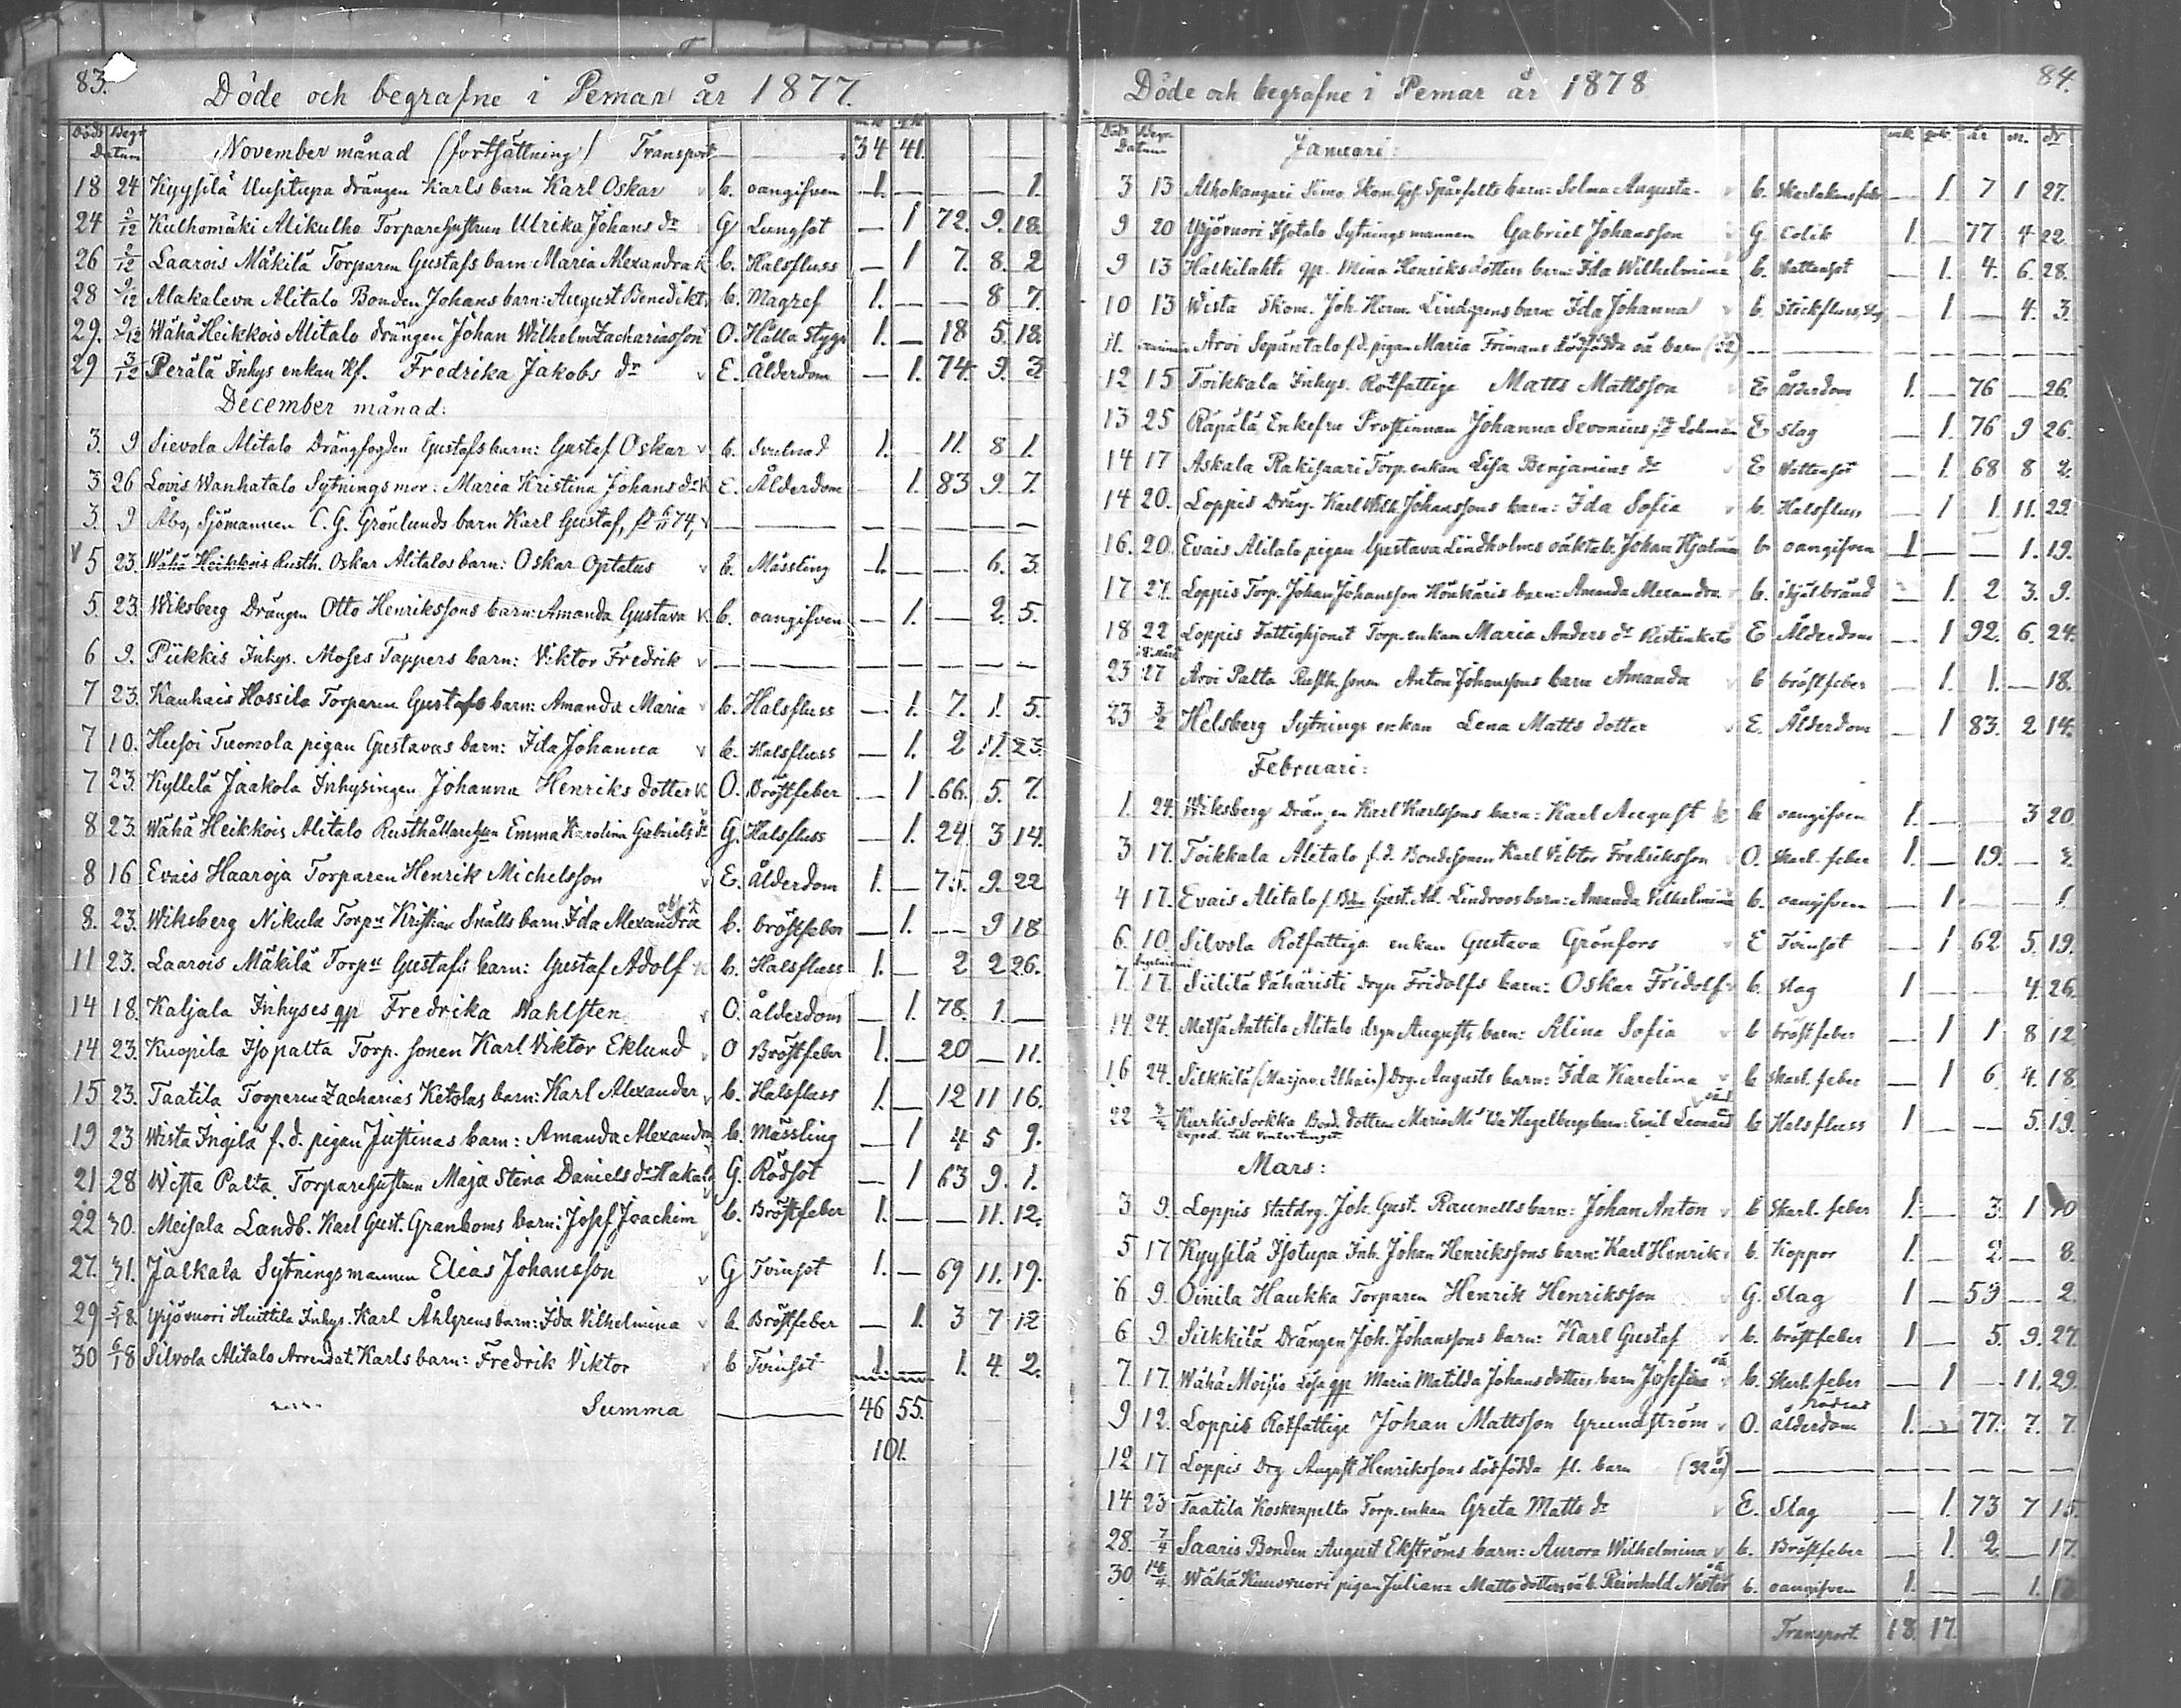 83.
Döde och begrafne i Pemar år 1877.
Döds Begr mk qk
Datum
November månad (fortsättning) Transport — — 34 41.
18 24 Kyysilä Uusitupa drängen Karls barn Karl Oskar v b. oangifven 1. — — — 1.
24 2/12 Kulhomäki Alikulho Torparehustrun Ulrika Johans dr G Lungsot — 1 72. 9. 18.
26 2/12 Laarois Mäkilä Torparen Gustafs barn Maria Alexandra K b. Halsfluss — 1 7. 8. 2
28 9/12 Alakaleva Alitalo Bonden Johans barn: August Benedikt b. Magref 1. — — 8 7.
29. 9/12 Wähä Heikkois Alitalo drängen Johan Wilhelm Zachariasson O. Håll o. Stygn 1. — 18 5. 18.
29 3/12 Perälä Inhys enkan Kf. Fredrika Jakobs dr v E. Ålderdom — 1. 74. 9. 3
December månad:
3. 9 Sievola Alitalo Drängfogden Gustafs barn: Gustaf Oskar v b. Svulnad 1. 11. 8 1.
3 26 Lovis Wanhatalo Sytnings mor: Maria Kristina Johans dr K E. Ålderdom 1. 83 9. 7.
3. 9 Åbo, Sjömannen C. G. Grönlunds barn Karl Gustaf, 74, v — — — — — — —
v 5 23. Wähä Heikkois Rusth. Oskar Alitalos barn: Oskar Optatus v b. Mässling 1. — — 6. 3.
5 23. Wiksberg Drängen Otto Henrikssons barn: Amanda Gustava K b. oangifven — 1. — 2. 5.
6 9. Piikkis Inhys. Moses Tappers barn: Viktor Fredrik v — — — — — — —
7 23. Kauhais Hossila Torparen Gustafs barn: Amanda Maria v b. Halsfluss — 1. 7. 1. 5.
7 10. Husoi Tuomola pigan Gustavas barn: Ida Johanna v b. Halsfluss — 1. 2 11. 23.
7 23. Kyllelä Jaakola Inhysingen Johanna Henriks dotter K O. Bröstfeber — 1. 66. 5. 7.
8 23. Wähä Heikkois Alitalo Rusthållarehun Emma Karolina Gabriels dr G. Halsfluss — 1. 24. 3 14.
8 16 Evais Haaroja Torparen Henrik Michelsson v E. Ålderdom 1. — 75. 9. 22
8. 23. Wiksberg Nikula Torpn Kristian Snälls barn Ida Alexandra b. bröstfeber — 1. — 9 18
11 23. Laarois Mäkilä Torpn Gustafs barn: Gustaf Adolf K b. Halsfluss 1. — 2 2 26.
14 18. Kaljala Inhyses qp Fredrika Wahlsten v O. ålderdom — 1. 78. 1. —
14 23. Kuopila Isopalta Torp. sonen Karl Viktor Eklund v O Bröstfeber 1. — 20 — 11.
15 23. Taatila Torparen Zacharias Ketolas barn: Karl Alexander v b. Halsfluss 1. — 12 11 16.
19 23 Wista Ingilä f. d. pigan Justinas barn: Amanda Alexandra b. Mässling — 1 4 5 9.
21 28 Wista Palta Torparehustrun Maja Stina Daniels dr Hakala G. Rödsot — 1 63 9. 1.
22 30. Meisala Landb. Karl Gust. Granboms barn: Josef Joachim v b. Bröstfeber 1. — — 11. 12.
27. 31. Jälkala Sytningsmannen Elias Johansson v G Tvinsot 1. — 69 11. 19.
29 5/1 8. Ypjövuori Huittila Inhys. Karl Åhlgrens barn: Ida Vilhelmina v b. Bröstfeber — 1. 3 7 12
30 6/1 8 Silvola Alitalo Arrendat. Karls barn: Fredrik Viktor v b Tvinsot 1. — 1. 4. 2.
Summa — — 46 55.
101.
84.
Döde och begrafne i Pemar år 1878
Döds Begr. mk. qvk. år m. dr
Datum
Januari:
3 13 Alhokangari Simo Skom. Spårfelts barn: Selma Augusta. v b. Skarlakansfeber — 1. 7 1 27.
9 20 Ypjövuori Isotalo Sytningsmannen Gabriel Johansson v G Colik 1. — 77 4 22
9 13 Halkilahti qp. Mina Henriksdotters barn: Ida Wilhelmina b. Vattensot — 1. 4. 6. 28.
10 13 Wista Skom. Joh. Herm. Lindgrens barn Ida Johanna v b. Stickfluss — 1 — 4. 3.
11. Arvi Sepäntalo f. d. pigan Maria Frimans dödfödda oä barn — —
12 15 Toikkala Inhys. Rotfattige Matts Mattsson v E Ålderdom 1. — 76 — 26.
13 25 Räpälä Enkefru Prostinnan Johanna Sevonius, E Slag — 1. 76 9 26.
14 17 Askala Rakisaari Torp. enkan Lisa Benjamins dr v E Vattensot — 1 68 8 2.
14 20. Loppis Dräng. Karl Wilh. Johanssons barn: Ida Sofia v b. Halsfluss — 1 1. 11. 22.
16. 20. Evais Alitalo pigan Gustava Lindholms oäkta b. Johan Hjalmar b oangifven 1 — — 1. 19.
17. 27. Loppis Torp. Johan Johansson Honkäris barn: Amanda Alexandra v b. ihjälbränd — 1. 2 3. 9.
18 22 Loppis Fattighjonet Torp. enkan Maria Anders dr E Ålderdom — 1 92. 6. 24.
23 27 Arvi Palta Rusth. sonen Anton Johanssons barn Amanda v b bröstfeber — 1. 1. — 18.
23 3/2 Helsberg Sytnings enkan Lena Matts dotter v E. Ålderdom — 1 83. 2 14.
Februari:
1. 24. Wiksberg Drängen Karl Karlssons barn: Karl August k b oangifven 1. — — 3 20.
3 17. Toikkala Alitalo f. d. Bondesonen Karl Viktor Fredriksson v O. Skarl. feber 1. — 19. —
4 17. Evais Alitalo Gust. Ad. Lindroos barn: Amanda Vilhelmina b. oangifven — 1. — — 1.
6. 10. Silvola Rotfattiga enkan Gustava Grönfors v E Tvinsot — 1 62 5. 19.
7. 17. Siililä Vähäristi drgn Fridolfs barn: Oskar Fridolf v b. Slag 1 — — 4. 26.
14. 24. Metsä Anttila Alitalo drgn Augusts barn: Alina Sofia v b bröstfeber — 1 1 8 12
16 24. Silkkilä Drg. Augusts barn: Ida Karolina v b Skarl. feber — 1 6. 4. 18.
22 Kurkis Sorkka Bond. dottren Maria Hagelbergs barn: Emil Leonard b Halsfluss 1 — — 5. 19.
Mars:
3 9. Loppis Statdrg. Joh. Gust. Raunells barn: Johan Anton v b Skarl. feber 1. — 3. 1
5 17 Kyysilä Isotupa Inh. Johan Henrikssons barn: Karl Henrik v b. Koppor 1. — 2 — 8.
6 9. Oinila Haukka Torparen Henrik Henriksson v G. Slag 1 — 53 — 2.
6 9. Silkkilä Drängen Joh. Johanssons barn: Karl Gustaf v b. bröstfeber 1 — 5. 9. 27.
7. 17. Wähä Moisio Lisa qp Maria Matilda Johans dotters barn Josefina oä b. Skarl. feber — 1 — 11. 29.
9 12. Loppis Rotfattige Johan Mattsson Grundström v O. ålderdom 1. — 77. 7. 7.
12 17 Loppis Drg August Henrikssons dödfödda fl. barn (32 år) — — — — — — —
14 23 Taatila Koskenpelto Torp. enkan Greta Matts dr v E. Slag — 1. 73 7 15.
28. 7/4 Saaris Bonden August Ekströms barn: Aurora Wilhelmina v b. Bröstfeber — 1. 2 — 17.
30 14/4 Wähä Kuusvuori pigan Juliana Mattsdotters oä b. Reinhold Nestor b. oangifven 1. — — 1.
Transport 18. 17.